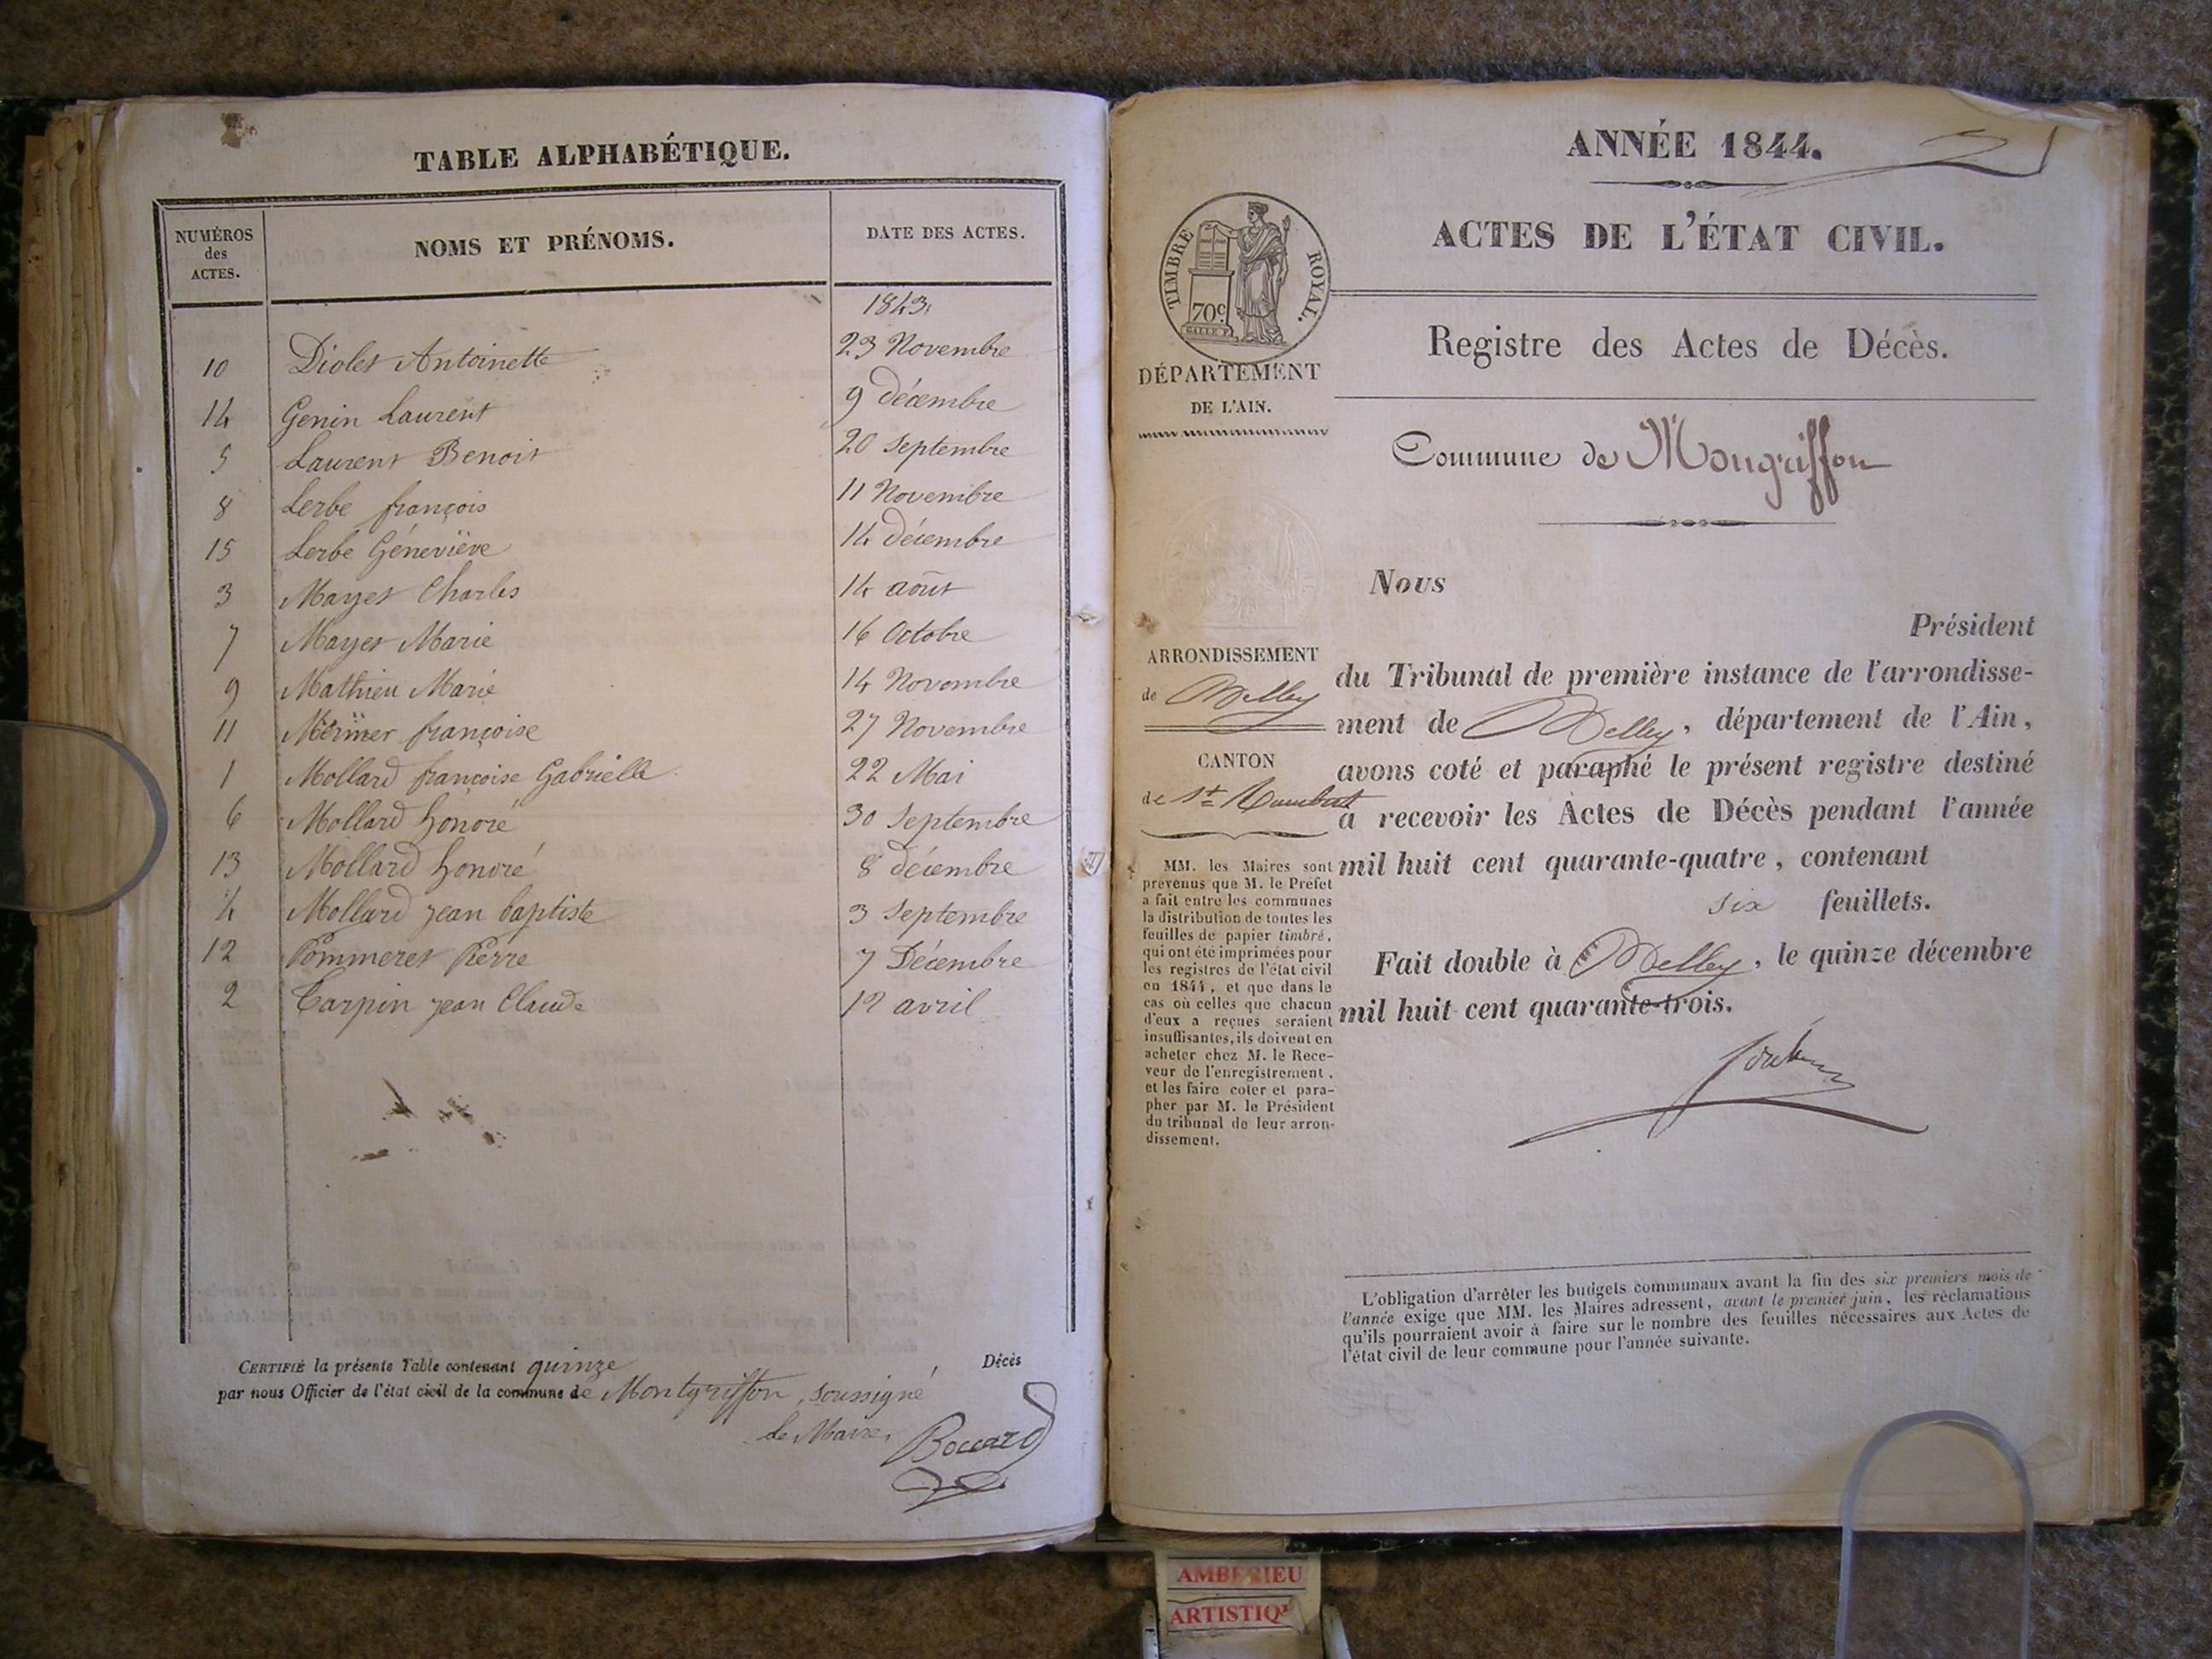 TABLE ALPHABÉTIQUE.
NUMÉROS des ACTES. NOMS ET PRÉNOMS. DATE DES ACTES.
1843.
10 Diolet Antoinette 23 Novembre
14 Genin Laurent 9 décembre
5 Laurent Benoit 20 Septembre
8 Lerbe françois 11 Novembre
15 Lerbe Géneviève 14 décembre
3 Mayet Charles 14 août
7 Mayet Marie 16 Octobre
9 Mathieu Marie 14 Novembre
11 françoise 27 Novembre
1 Mollard françoise Gabrielle 22 Mai
6 Mollard honoré 30 Septembre
13 Mollard honoré 8 décembre
4 Mollard jean baptiste 3 Septembre
12 Pommeret Pierre 7 Décembre
2 Tarpin jean Claude 12 avril
CERTIFIÉ la présente Table contenant quinze Décès
par nous Officier de l'état civil de la commune de Montgriffon, soussigné
Le Maire,
Bouard
ANNÉE 1844.
ACTES DE L'ÉTAT CIVIL.
TIMBRE ROYAL.
70c
GALLE F.
Registre des Actes de Décès.
DÉPARTEMENT
DE L'AIN.
Commune de Mongriffon
Nous
Président
ARRONDISSEMENT
de Belley
CANTON
de St Rambert
du Tribunal de première instance de l'arrondisse-
ment de Belley, département de l'Ain,
avons coté et paraphé le présent registre destiné
à recevoir les Actes de Décès pendant l'année
mil huit cent quarante-quatre, contenant
six feuillets.
Fait double à Belley, le quinze décembre
mil huit cent quarante-trois.
MM. les Maires sont
prévenus que M. le Préfet
a fait entre les communes
la distribution de toutes les
feuilles de papier timbré,
qui ont été imprimées pour
les registres de l'état civil
en 1844, et que dans le
cas où celles que chacun
d'eux a reçues seraient
insuffisantes, ils doivent en
acheter chez M. le Rece-
veur de l'enregistrement,
et les faire coter et para-
pher par M. le Président
du tribunal de leur arron-
dissement.
L'obligation d'arrêter les budgets communaux avant la fin des six premiers mois de
l'année exige que MM. les Maires adressent, avant le premier juin, les réclamations
qu'ils pourraient avoir à faire sur le nombre des feuilles nécessaires aux Actes de
l'état civil de leur commune pour l'année suivante.
AMBERIEU
ARTISTIQ